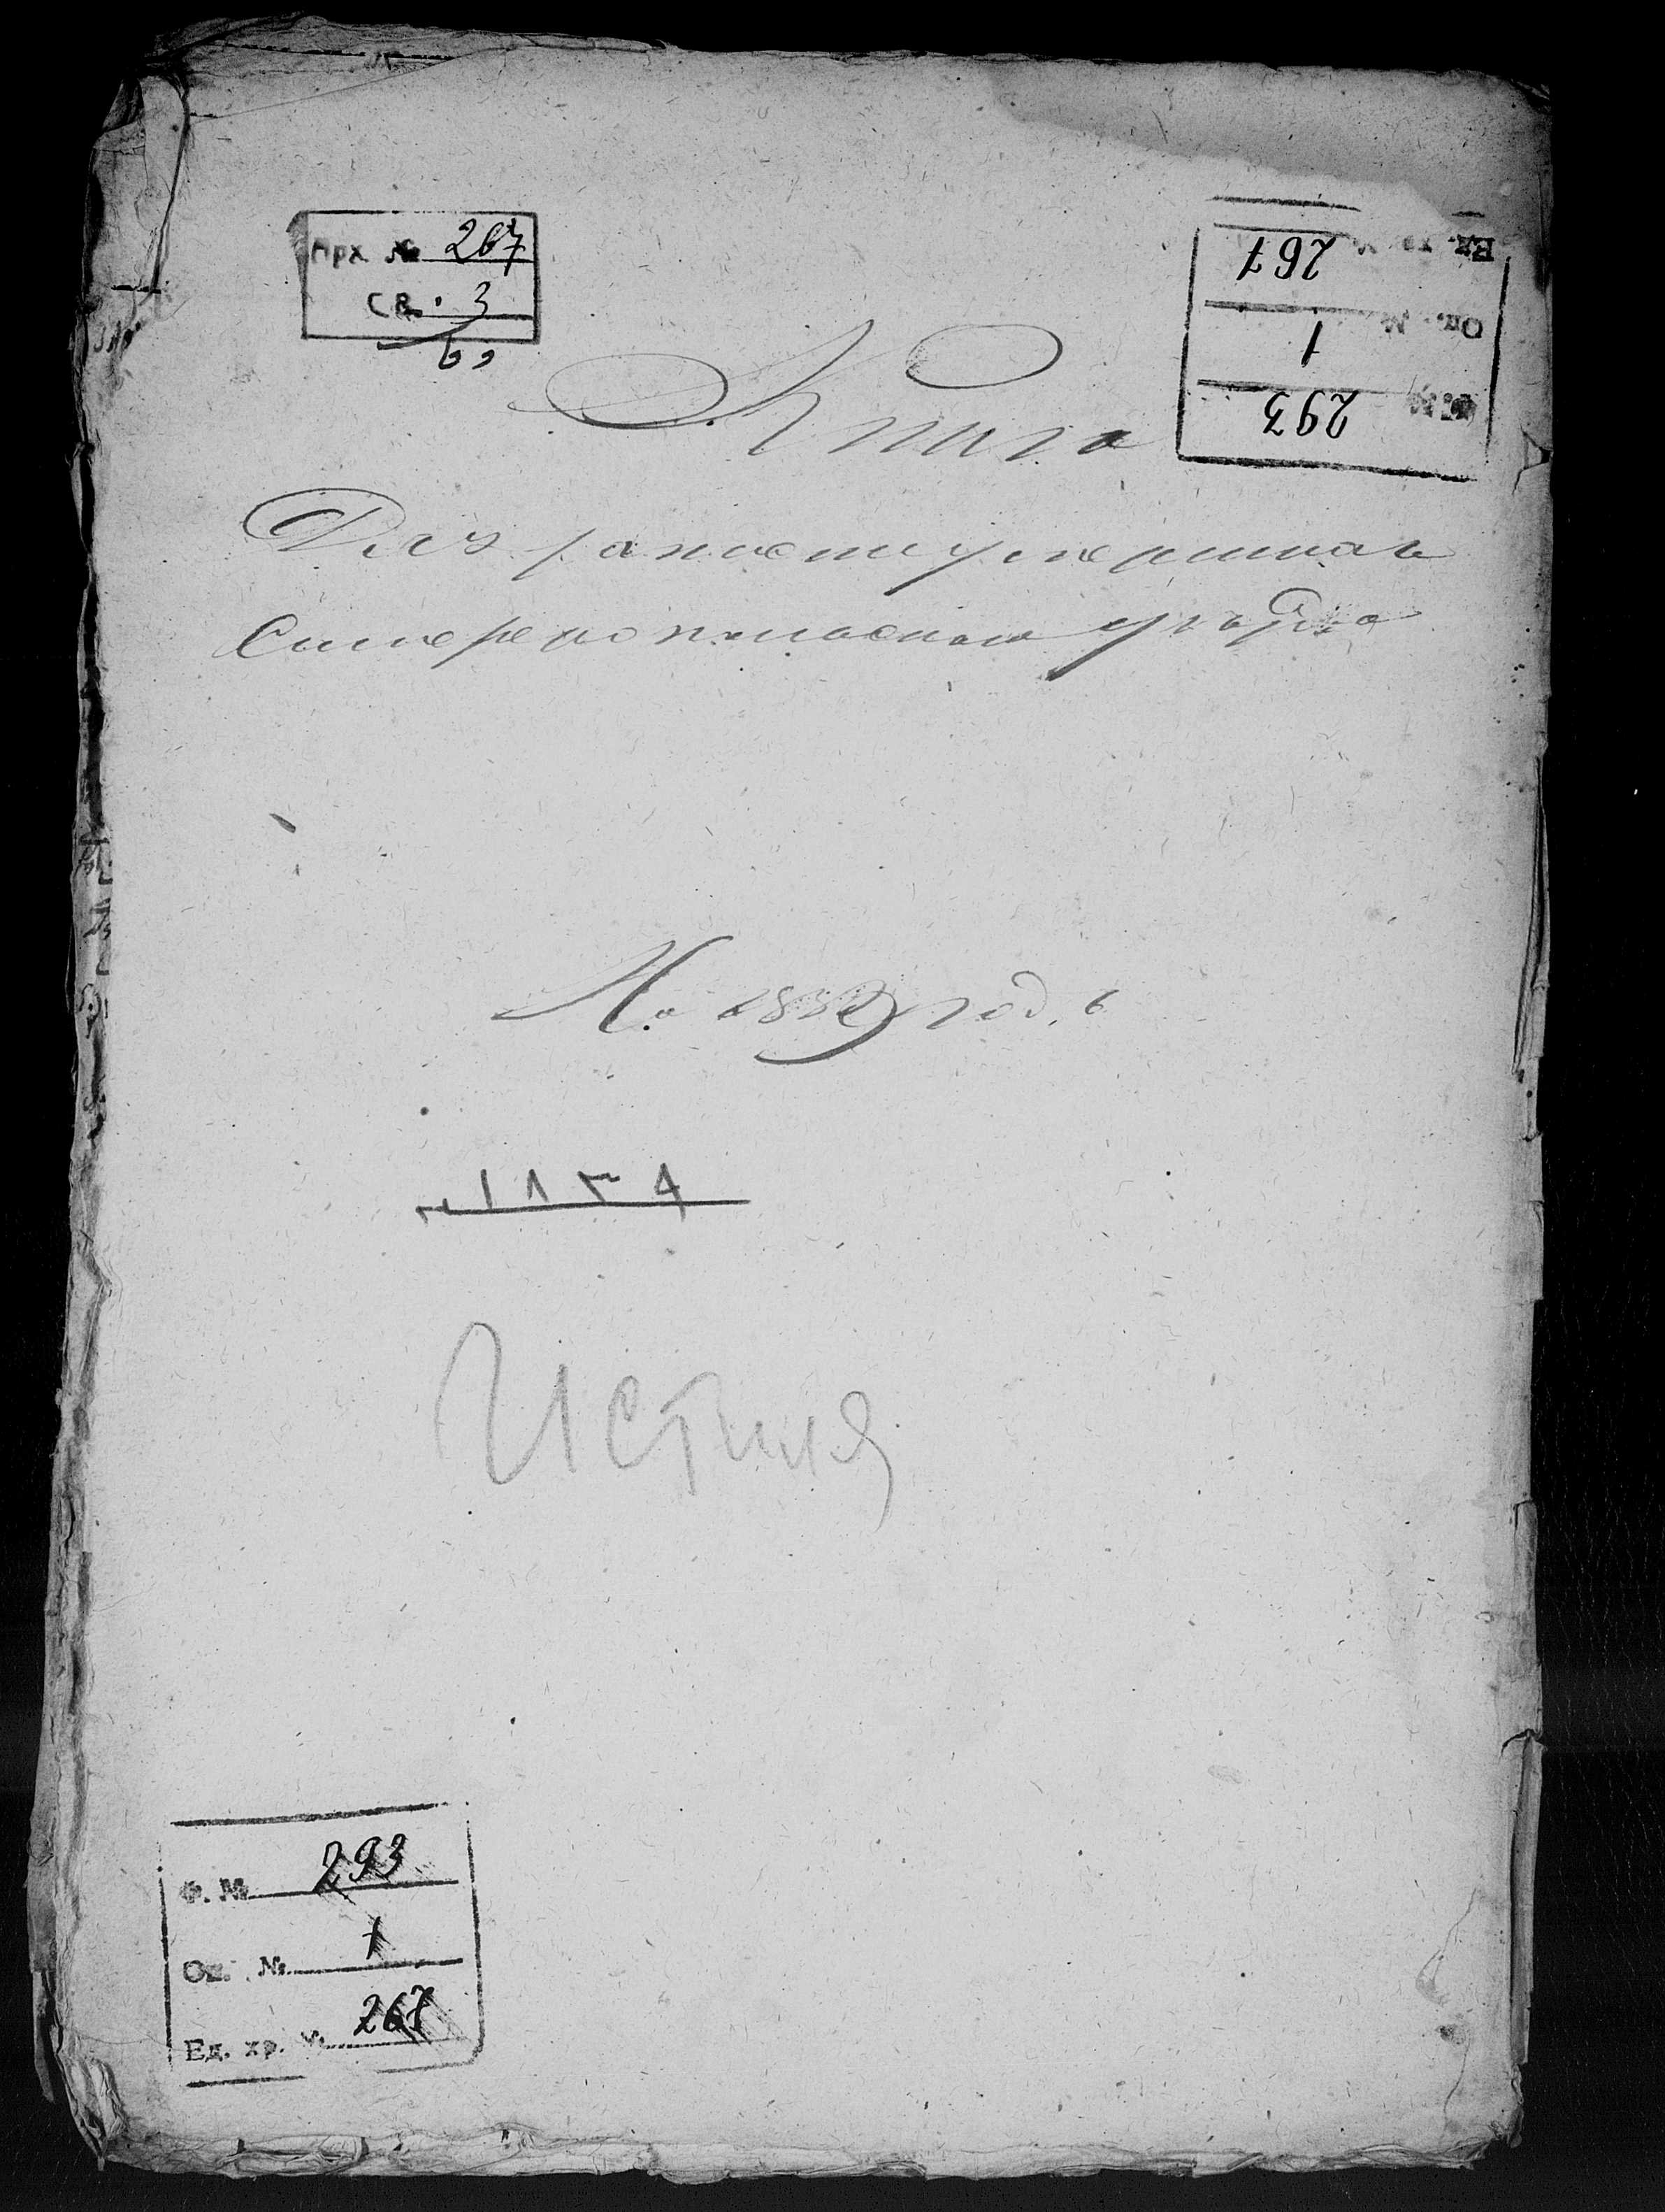 Арх № 267
Св. 3
Ед. хр. № 267
Оп. № 1
Ф. № 293
Книга
Для записи умерших
уезда
На 1839 годъ
١٨٣٩
Ф. № 293
Оп. № 1
Ед. хр. № 267